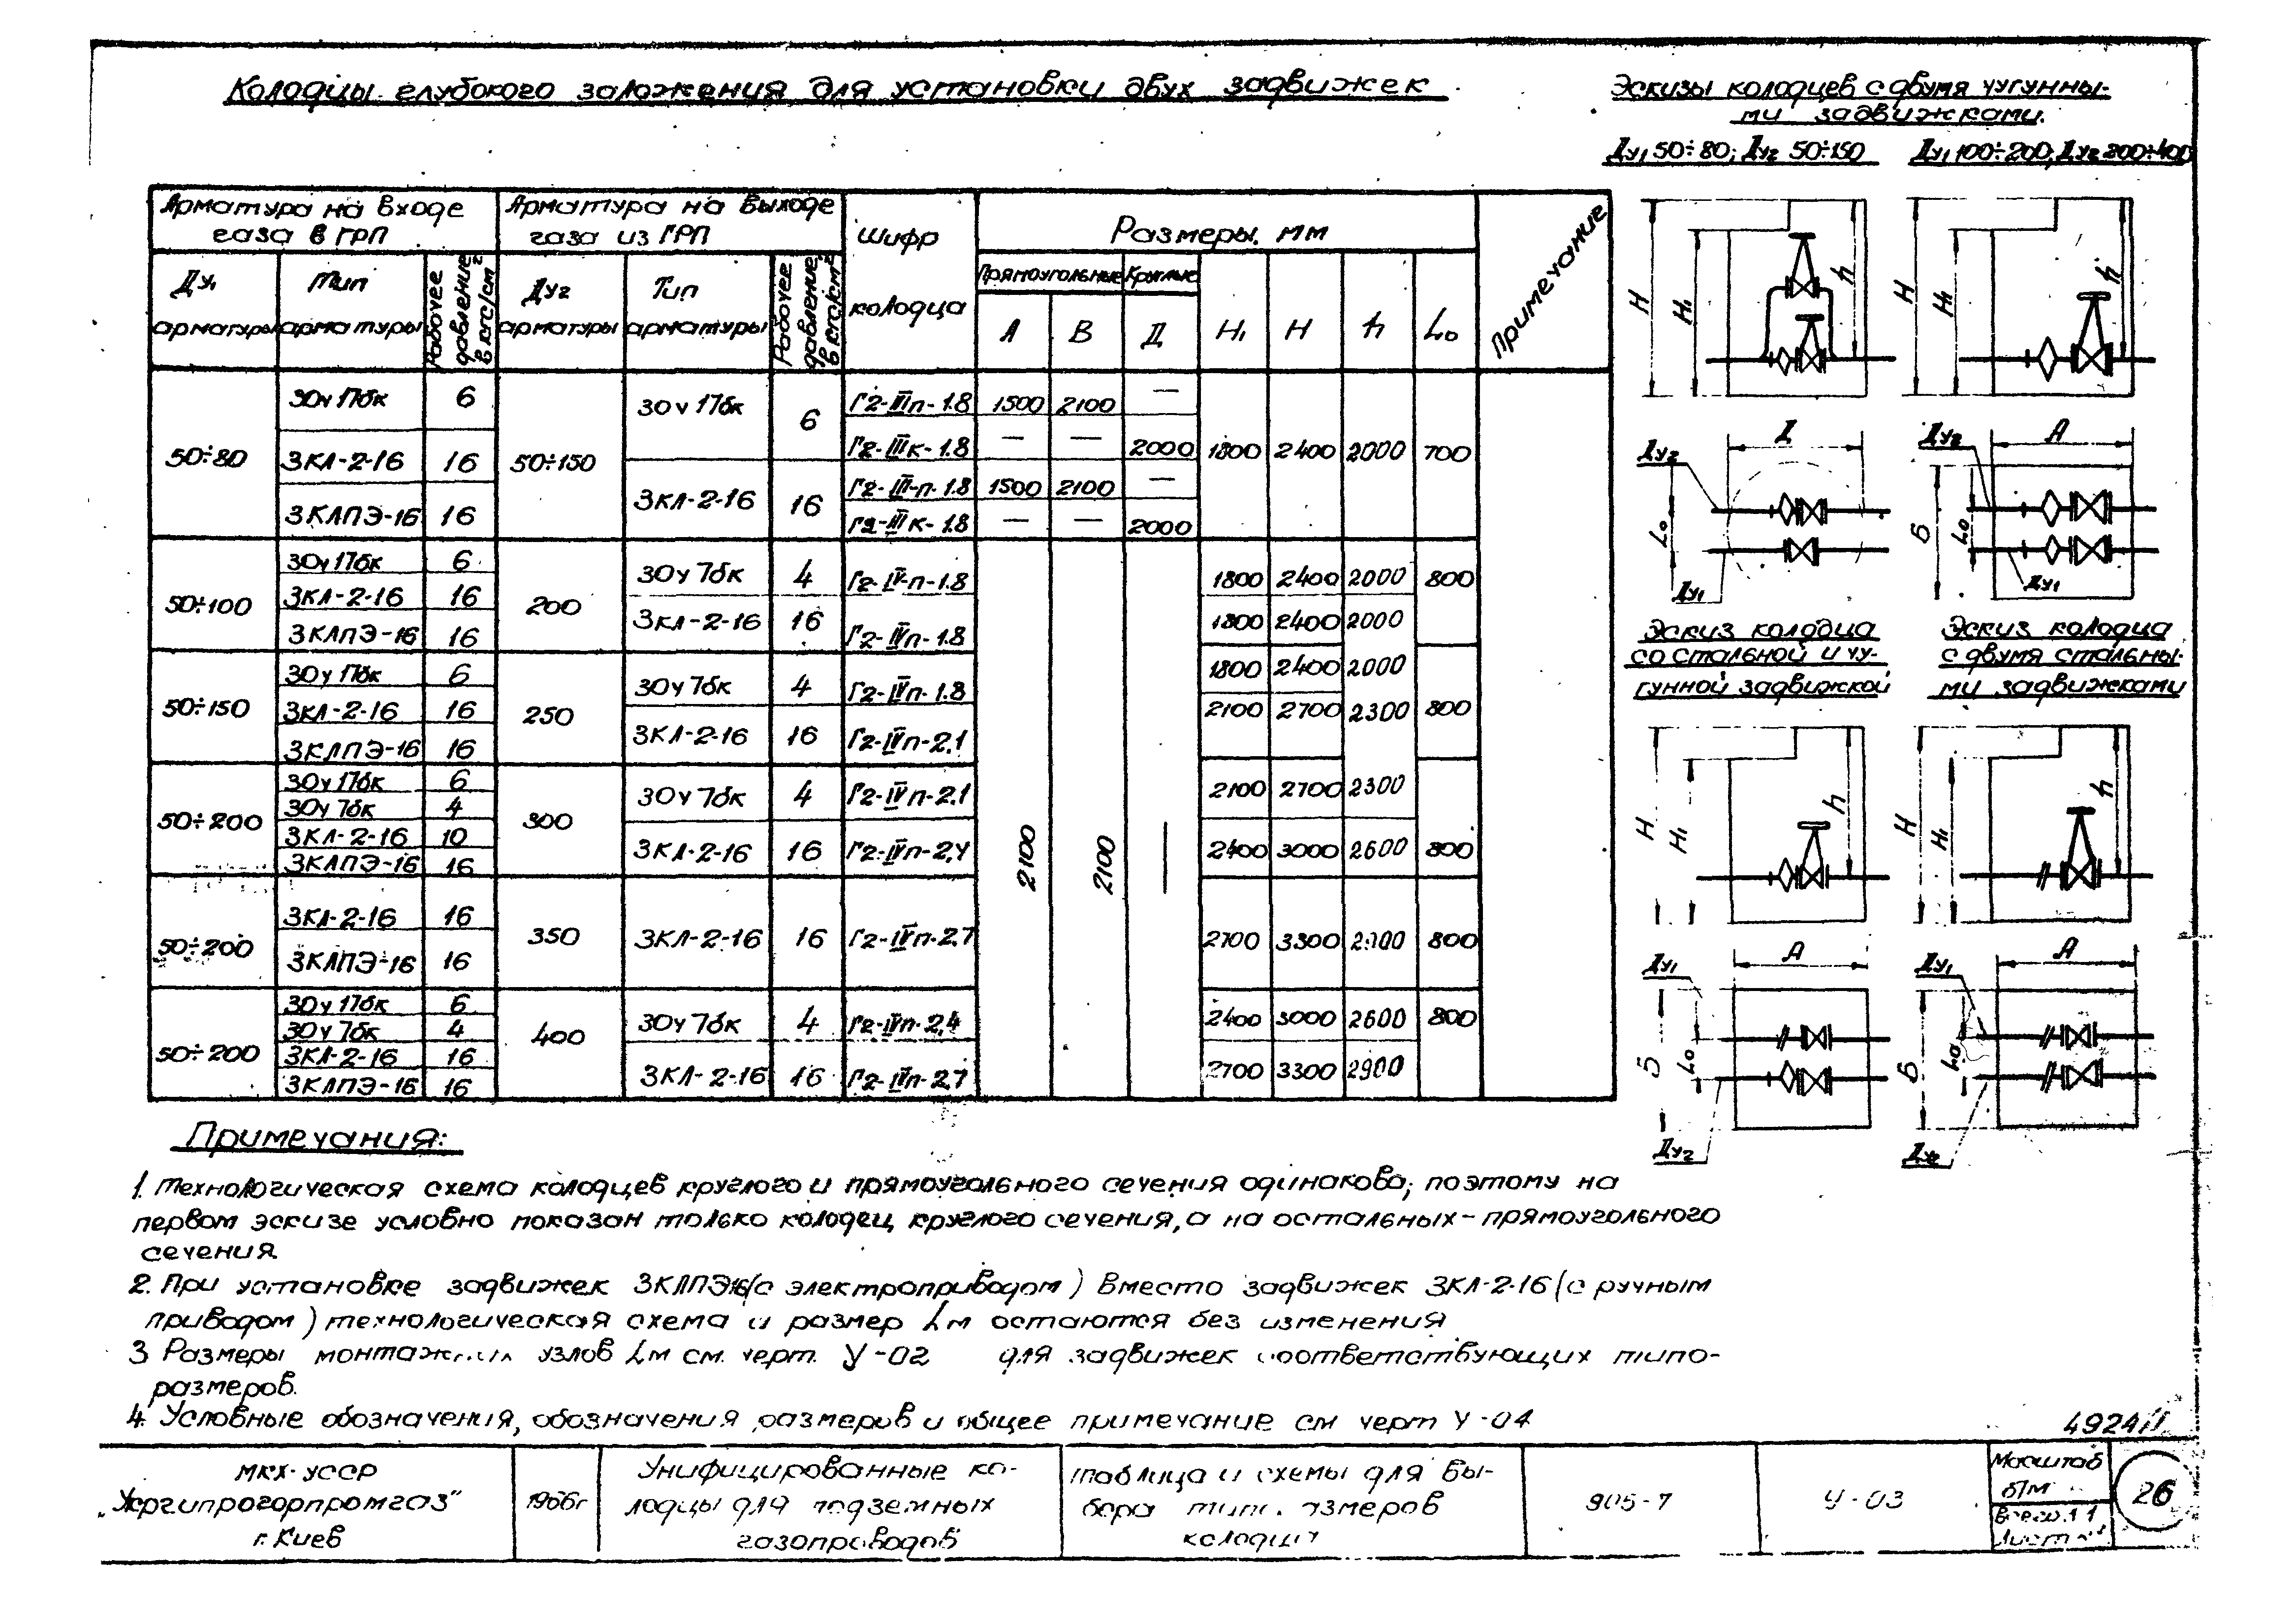 Колодцы глубокого заложения для установки двух задвижек
Эскизы колодцев с двумя чугунны-
ми задвижками.
Ду₁ 50÷80; Ду₂ 50÷150
Ду₁ 100÷200; Ду₂ 200÷400
Арматура на входе газа в ГРП
Арматура на выходе газа из ГРП
Шифр колодца
Размеры, мм
Примечание
Ду₁ арматуры
Тип арматуры
Рабочее давление в кгс/см²
Ду₂ арматуры
Тип арматуры
Рабочее давление в кгс/см²
Прямоугольные
Круглые
А В Д H₁ H h L₀
50÷80
30ч17бк 6
ЗКЛ-2-16 16
ЗКЛПЭ-16 16
50÷150
30ч17бк 6
ЗКЛ-2-16 16
Г2-IIIп-1.8 1500 2100 —
Г2-IIIк-1.8 — — 2000
Г2-III-п-1.8 1500 2100 —
Г2-IIIк-1.8 — — 2000
1800 2400 2000 700
50÷100
30ч17бк 6
ЗКЛ-2-16 16
ЗКЛПЭ-16 16
200
30ч7бк 4 Г2-IV-п-1.8 1800 2400 2000 800
ЗКЛ-2-16 16 Г2-IVп-1.8 1800 2400 2000
50÷150
30ч17бк 6
ЗКЛ-2-16 16
ЗКЛПЭ-16 16
250
30ч7бк 4 Г2-IVп-1.8 1800 2400 2000
ЗКЛ-2-16 16 Г2-IVп-2.1 2100 2700 2300 800
50÷200
30ч17бк 6
30ч7бк 4
ЗКЛ-2-16 10
ЗКЛПЭ-16 16
300
30ч7бк 4 Г2-IVп-2.1 2100 2700 2300
ЗКЛ-2-16 16 Г2-IVп-2,4 2400 3000 2600 800
2100 2100 —
50÷200
ЗКЛ-2-16 16
ЗКЛПЭ-16 16
350 ЗКЛ-2-16 16 Г2-IVп-2.7 2700 3300 2900 800
50÷200
30ч17бк 6
30ч7бк 4
ЗКЛ-2-16 16
ЗКЛПЭ-16 16
400
30ч7бк 4 Г2-IVп-2,4 2400 3000 2600 800
ЗКЛ-2-16 16 Г2-IVп-2,7 2700 3300 2900
H H₁ h
H H₁ h
Ду₂ Д L₀ Ду₁
Ду₂ А Б L₀ Ду₁
Эскиз колодца
со стальной и чу-
гунной задвижкой
Эскиз колодца
с двумя стальны-
ми задвижками
H H₁ h
H H₁ h
Ду₁ А Б L₀ Ду₂
Ду₁ А Б L₀ Ду₂
Примечания:
1. Технологическая схема колодцев круглого и прямоугольного сечения одинакова; поэтому на
первом эскизе условно показан только колодец круглого сечения, а на остальных - прямоугольного
сечения.
2. При установке задвижек ЗКЛПЭ16 (с электроприводом) вместо задвижек ЗКЛ-2-16 (с ручным
приводом) технологическая схема и размер Lм остаются без изменения
3 Размеры монтажных узлов Lм см. черт. У-02 для задвижек соответствующих типо-
размеров.
4. Условные обозначения, обозначения размеров и общее примечание см черт У-04
4924/1
МКХ УССР
„Укргипрогорпромгаз"
г. Киев
1966г
Унифицированные ко-
лодцы для подземных
газопроводов
Таблица и схемы для вы-
бора типоразмеров
колодца
905-7
У-03
Масштаб
б/м
Листов
26